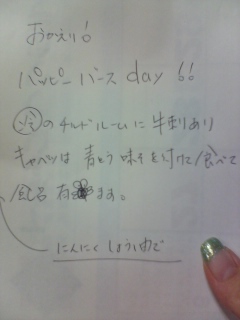 おかえり!
ハッピーバースday!!
冷のチルドルームに牛刺あり
キャベツは 青とう味そを付けて食べて
風呂 有ます。
にんにくしょうゆで